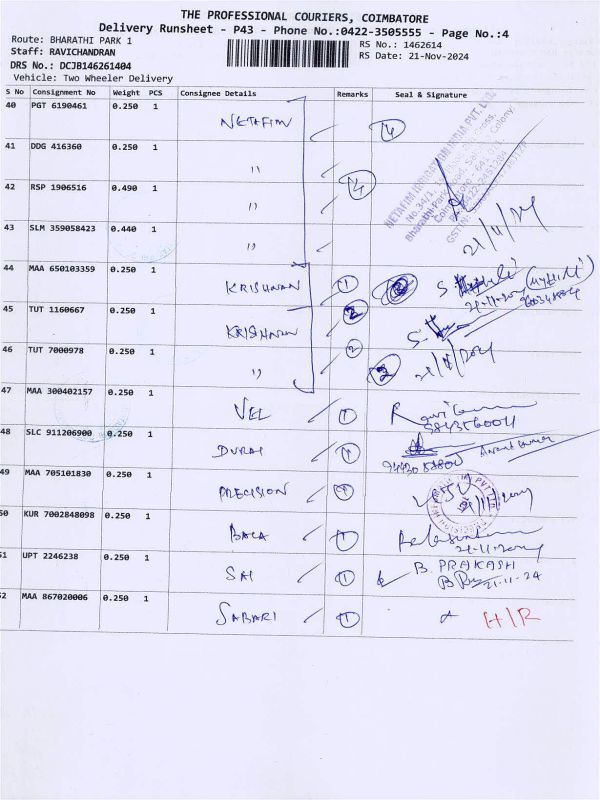 THE PROFESSIONAL COURIERS, COIMBATORE
Delivery Runsheet - P43 - Phone No.:0422-3505555 - Page No.:4
Route: BHARATHI PARK 1
Staff: RAVICHANDRAN
DRS No.: DCJB146261404
Vehicle: Two Wheeler Delivery
RS No.: 1462614
RS Date: 21-Nov-2024
S No Consignment No Weight PCS Consignee Details Remarks Seal & Signature
40 PGT 6190461 0.250 1 NETAFIM 4
41 DDG 416360 0.250 1 "
42 RSP 1906516 0.490 1 " 4
43 SLM 359058423 0.440 1 "
NETAFIM IRRIGATION INDIA PVT. LTD.
21/11/2024
44 MAA 650103359 0.250 1 KRISHNAN 1 2
45 TUT 1160667 0.250 1 KRISHNAN 2
46 TUT 7000978 0.250 1 " 2 2
47 MAA 300402157 0.250 1 VEL 1
48 SLC 911206900 0.250 1 DURAI 1 Anand Kumar
49 MAA 705101830 0.250 1 PRECISION 1
50 KUR 7002848098 0.250 1 BALA 1
21-11-2024
51 UPT 2246238 0.250 1 SAI 1 B. PRAKASH
21-11-24
52 MAA 867020006 0.250 1 SABARI 1 H/R